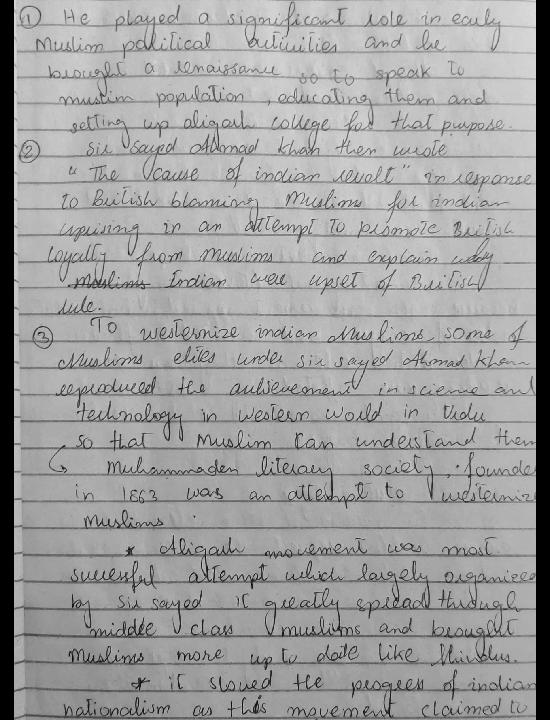 ① He played a significant role in early
Muslim political activities and he
brought a renaissance so to speak to
muslim population, educating them and
setting up aligarh college for that purpose.
② Sir Sayed Ahmad Khan then wrote
"The cause of indian revolt" in response
to British blaming Muslims for indian
uprising in an attempt to promote British
loyalty from muslims and explain why
Indian were upset of British
rule.
③ To westernize indian Muslims, some of
Muslims elites under sir sayed Ahmad Khan
reproduced the achievement in science and
technology in western world in Urdu
so that Muslim can understand them
Muhammaden literary society, founde
in 1863 was an attempt to westernize
Muslims
* Aligarh movement was most
successful attempt which largely organized
by Sir sayed it greatly spread through
middle class muslims and brought
Muslims more up to date like Hindus.
* it slowed the progees of indian
nationalism as this movement claimed to